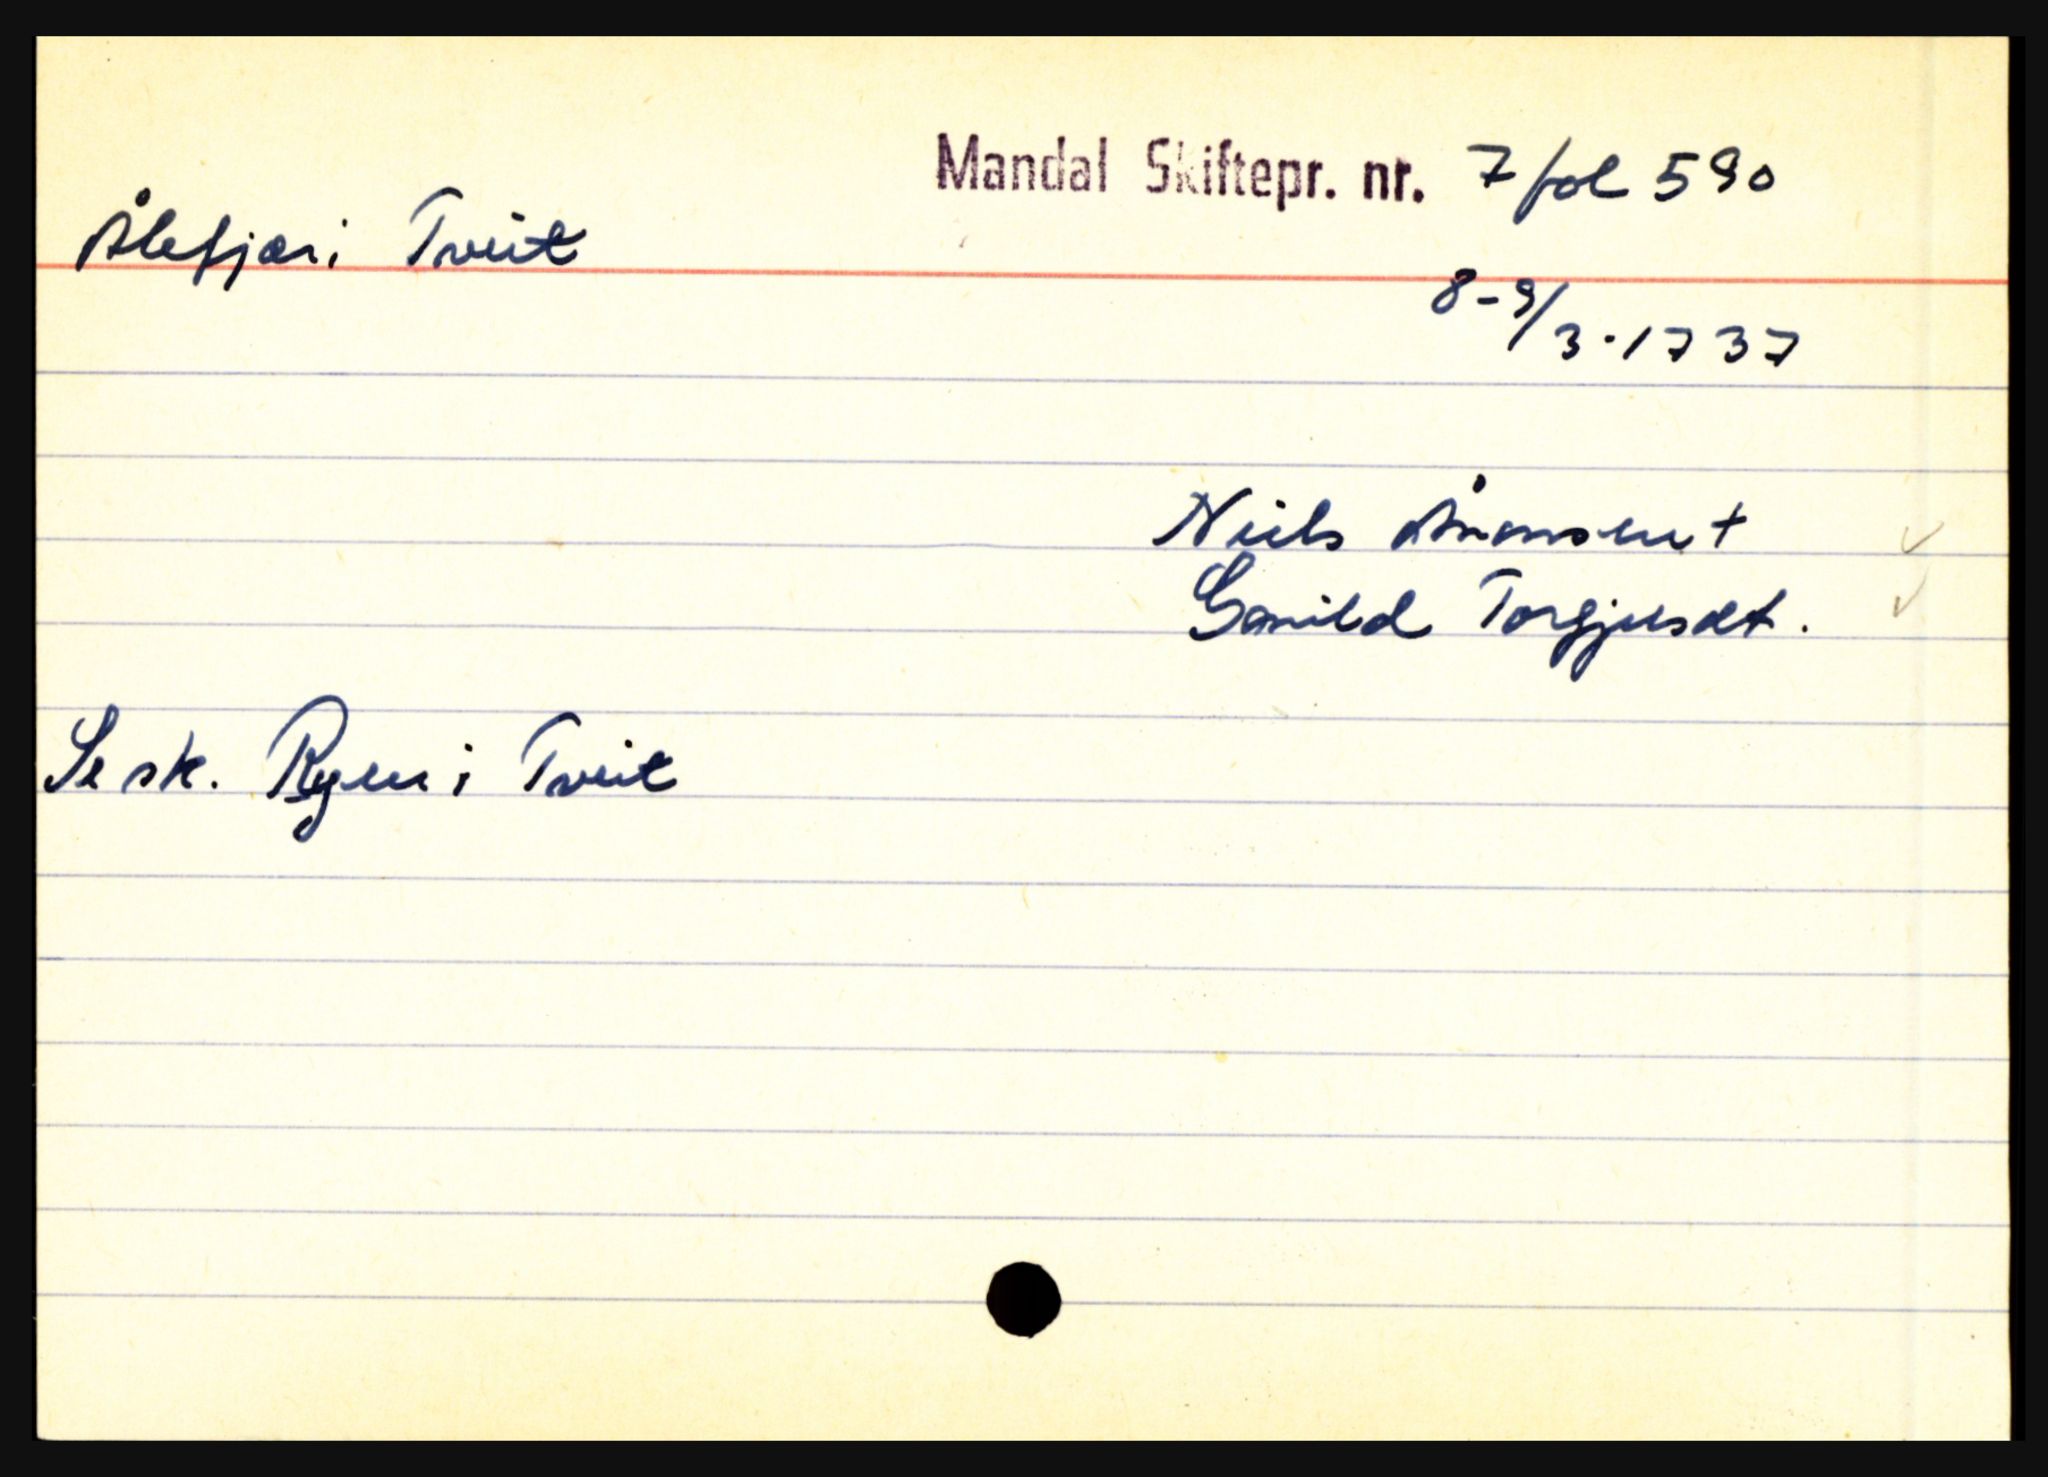 Mandal Skiftepr. nr. 7 fol 590
Ålefjær i Tveit
8-9/3.1737
Niels Ånonsen +
Gonild Torgjusdt.
Se sk. Ryen i Tveit